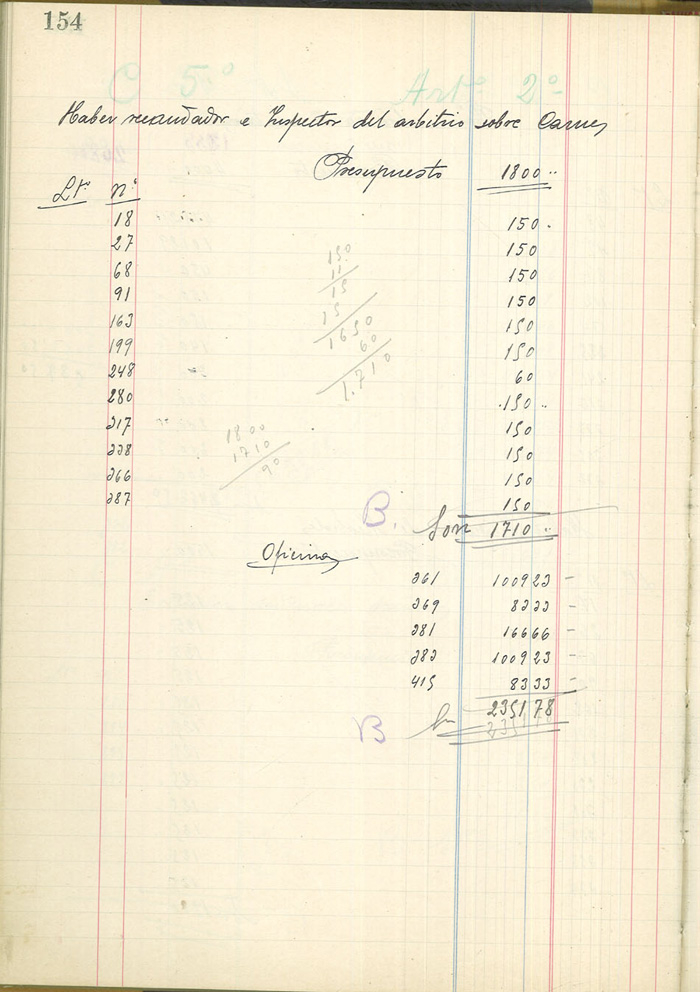 154
C 5º Artº 2º
Haber recaudador e Inspector del arbitrio sobre Carnes
Presupuesto 1800 ..
Lº nº
18 150 .
27 150
68 150
91 150
163 150
199 150
248 60
280 .150 ..
317 150
338 150
366 150
387 150
150
11
15
15
1650
60
1.710
1800
1710
90
B. Son 1710 ..
Oficinas
361 1009 23 –
369 83 33 –
381 166 66 –
383 1009 23 –
415 83 33 –
B 2351 78
2351 78